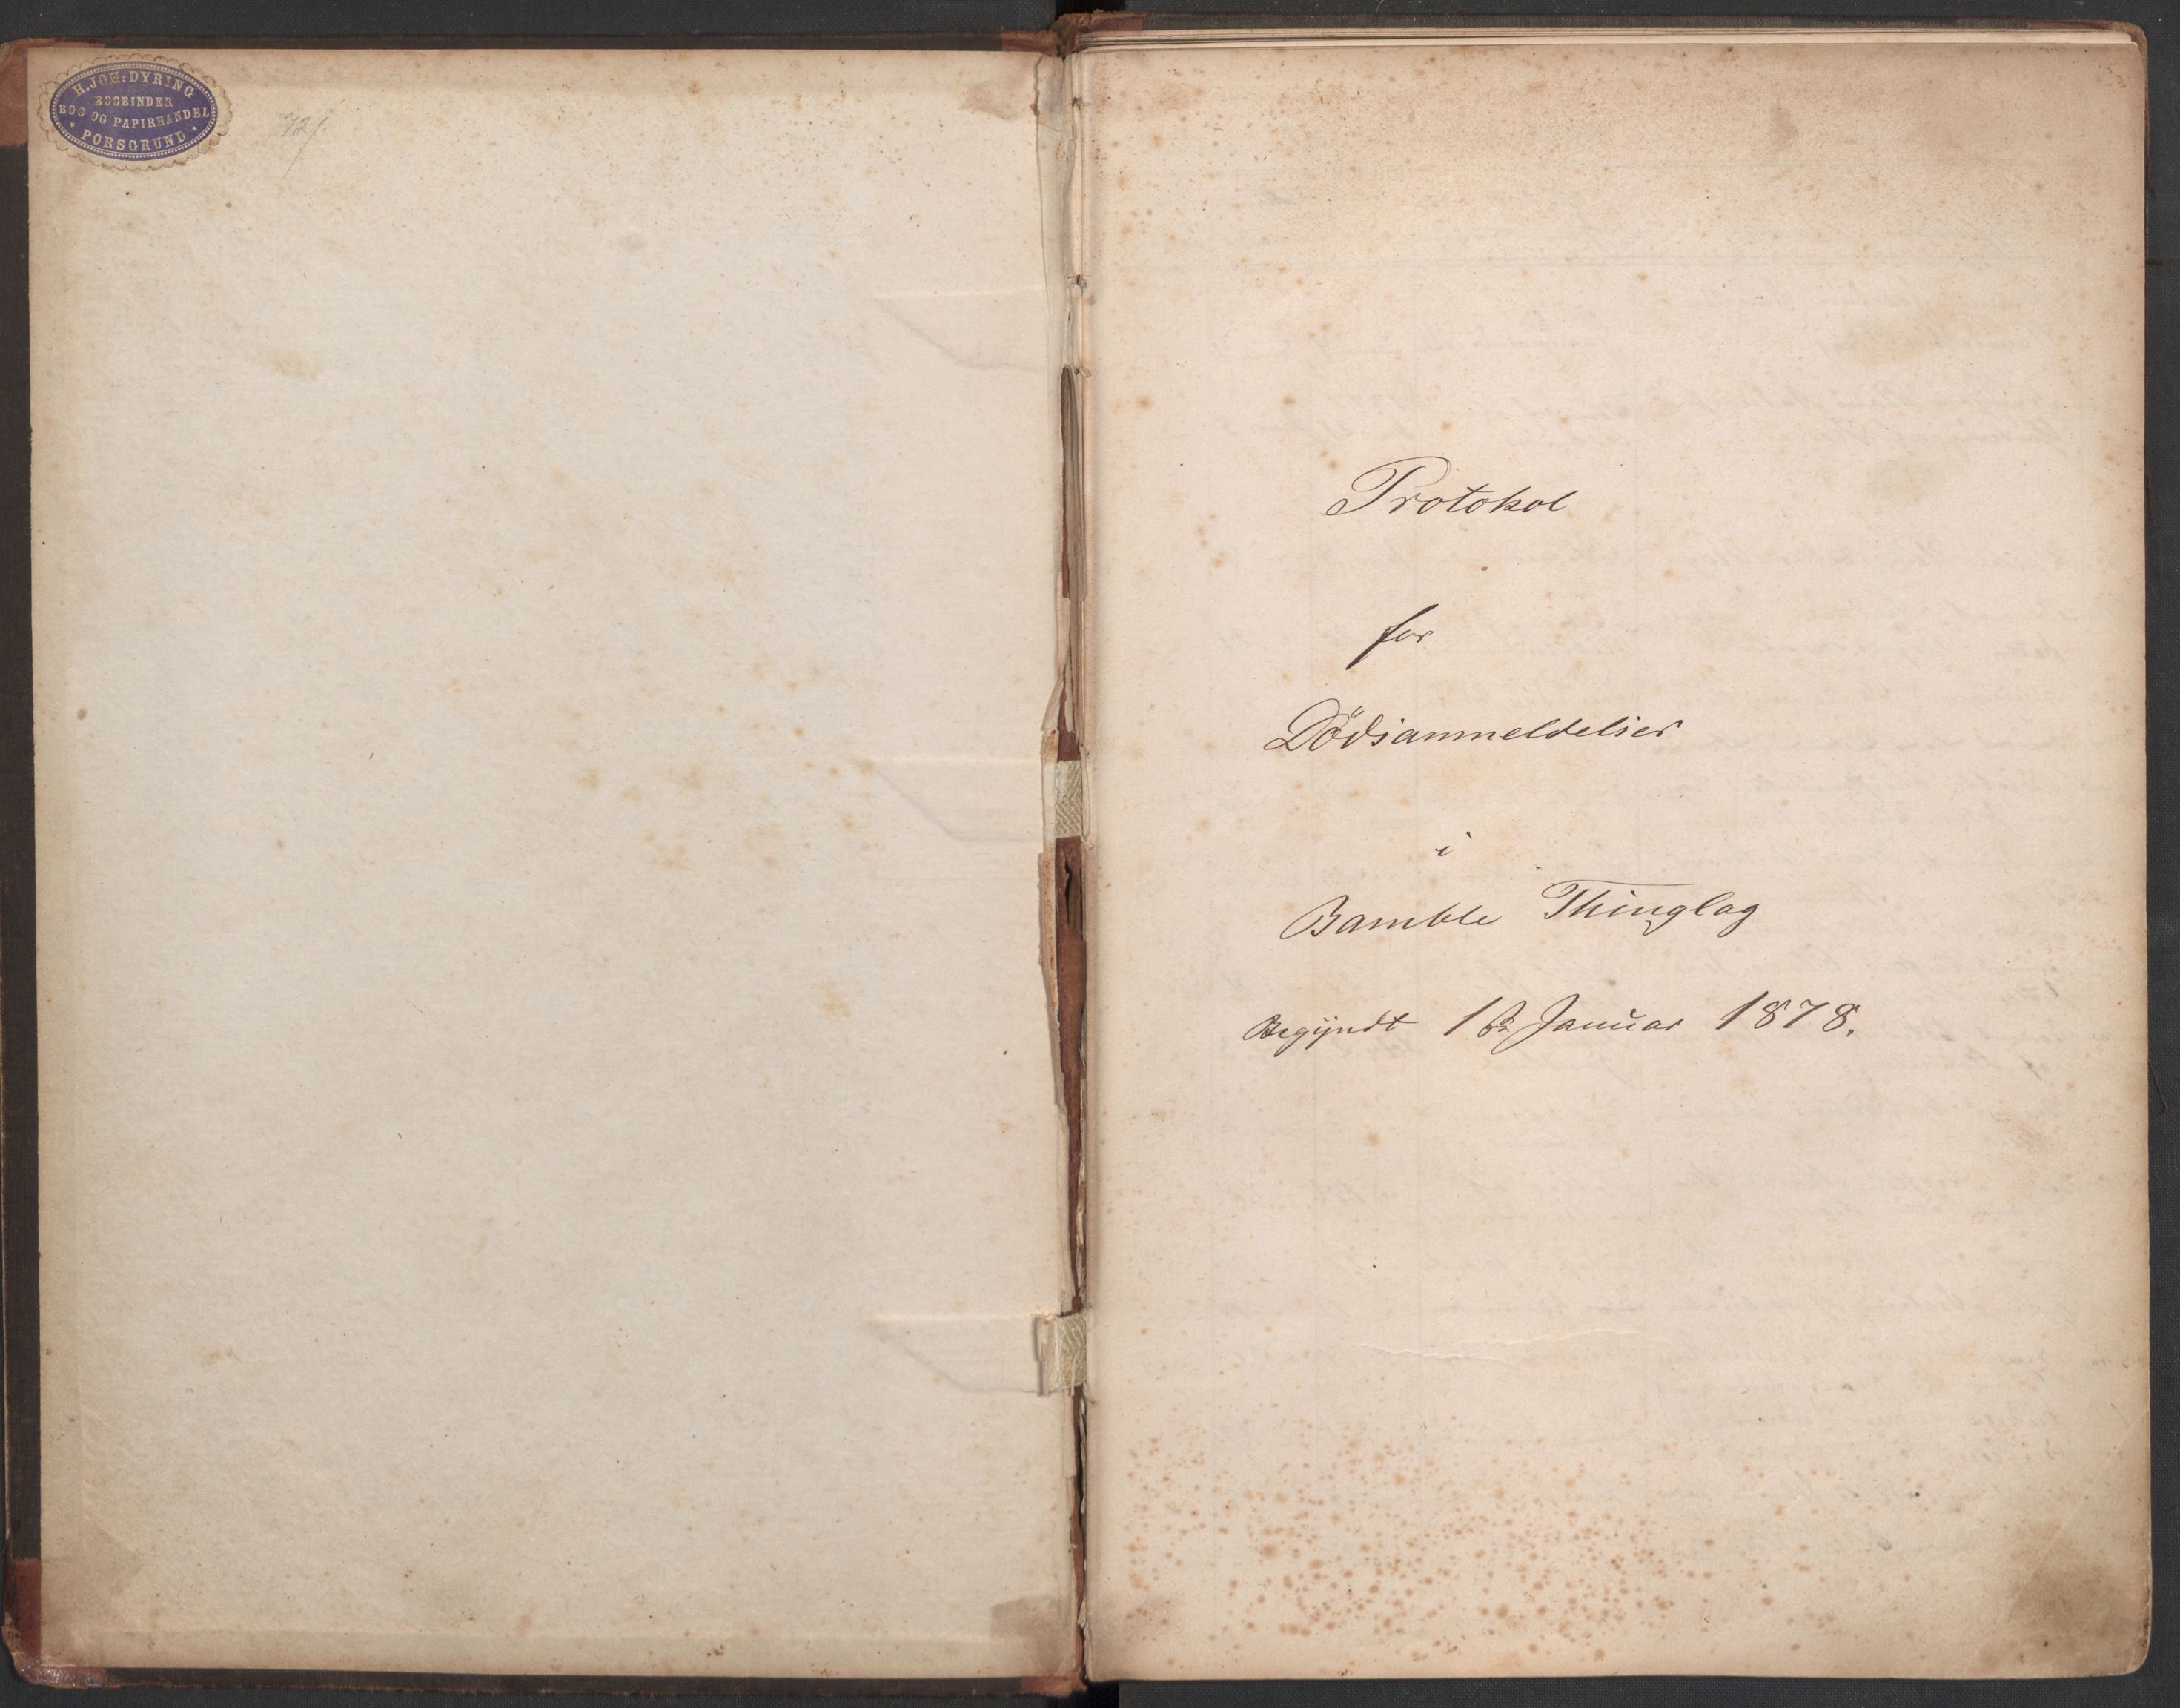 H. JOH: DYRING
BOGBINDER
BOG OG PAPIRHANDEL
PORSGRUND
Protokol
for
Dödsanmeldelser
i
Bamble Thinglag
Begyndt 1ste Januar 1878.